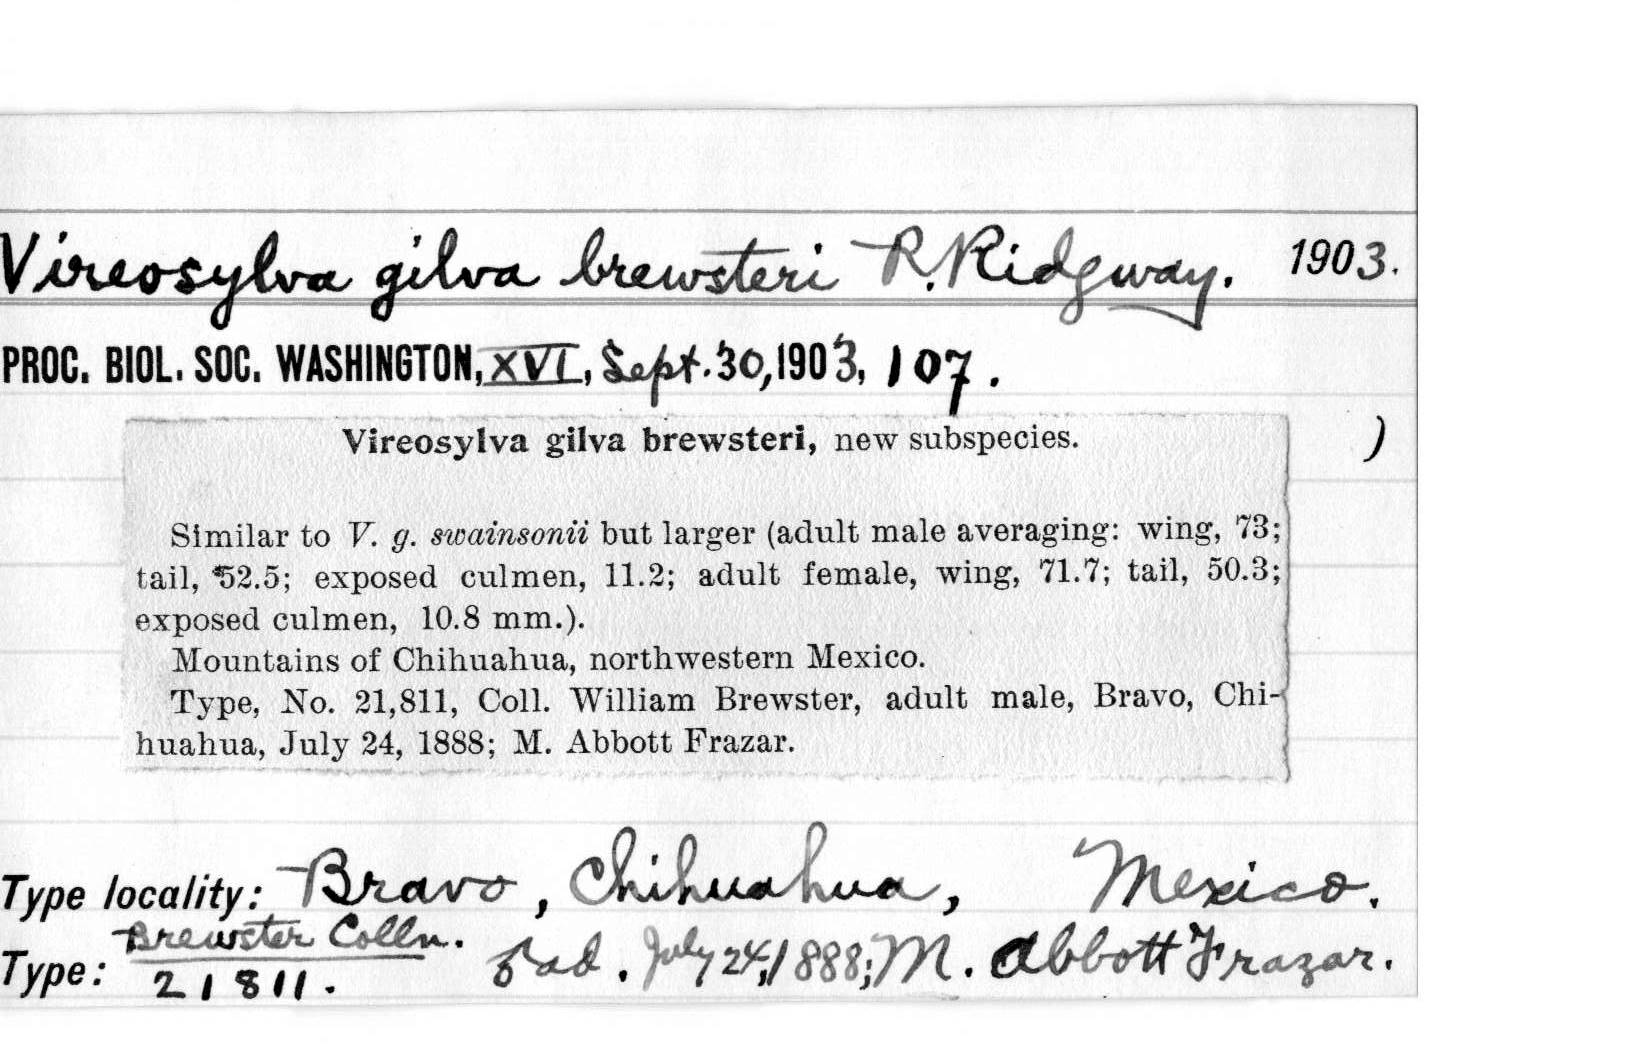 Vireosylva gilva brewsteri R. Ridgway. 1903.
PROC. BIOL. SOC. WASHINGTON, XVI, Sept. 30, 1903, 107.
)
Vireosylva gilva brewsteri, new subspecies.
Similar to V. g. swainsonii but larger (adult male averaging: wing, 73;
tail, 52.5; exposed culmen, 11.2; adult female, wing, 71.7; tail, 50.3;
exposed culmen, 10.8 mm.).
Mountains of Chihuahua, northwestern Mexico.
Type, No. 21,811, Coll. William Brewster, adult male, Bravo, Chi-
huahua, July 24, 1888; M. Abbott Frazar.
Type locality: Bravo, Chihuahua, Mexico.
Brewster Colln.
Type: 21811. ♂ad. July 24, 1888; M. Abbott Frazar.